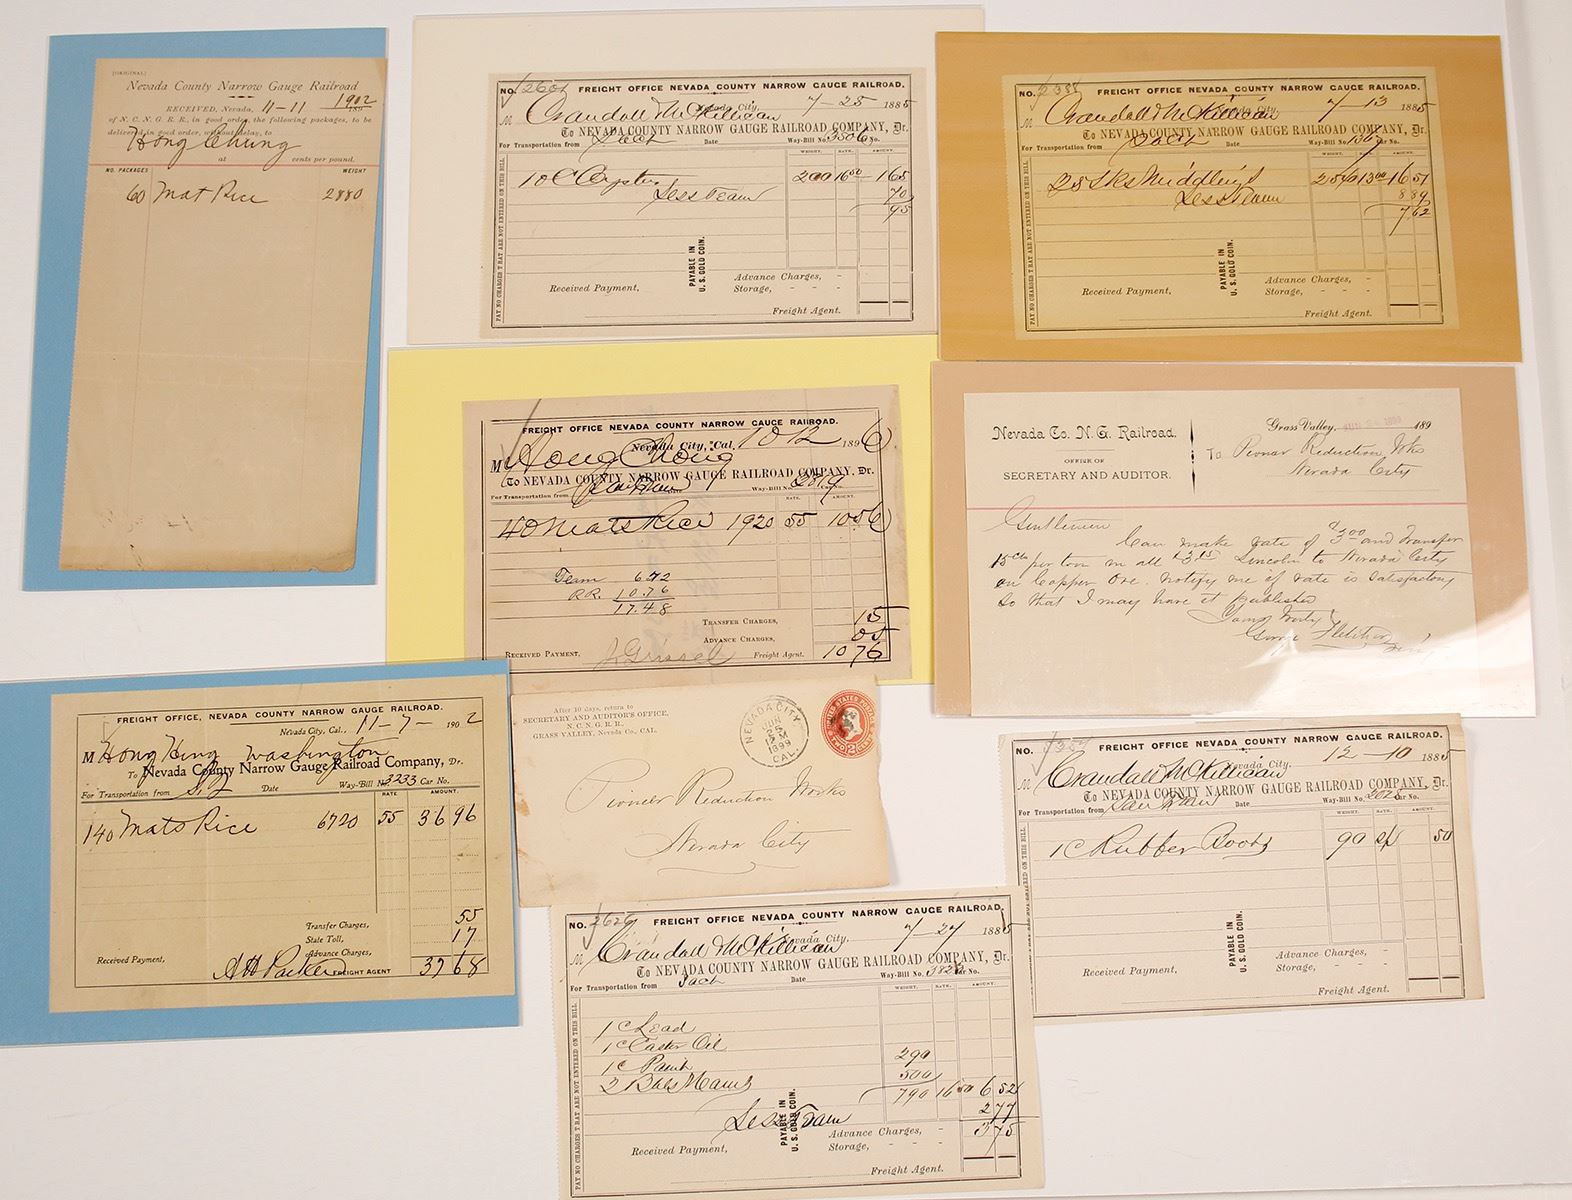 [ORIGINAL]
Nevada County Narrow Gauge Railroad
RECEIVED, Nevada, 11-11 1902
of N. C. N. G. R. R., in good order, the following packages, to be
delivered in good order, without delay, to
Hong Chung
at cents per pound.
NO. PACKAGES WEIGHT
60 Mat Rice 2880
NO. 2601 FREIGHT OFFICE NEVADA COUNTY NARROW GAUGE RAILROAD.
Nevada City, 7-25 1885
M Crandall McKillican
To NEVADA COUNTY NARROW GAUGE RAILROAD COMPANY, Dr.
For Transportation from Sach Date Way-Bill No. 3506 Car No.
WEIGHT. RATE. AMOUNT.
10 C Oyster 200 16 50 1 65
Less Team 70
95
PAYABLE IN
U. S. GOLD COIN.
Advance Charges, -
Received Payment, Storage, - - -
Freight Agent.
PAY NO CHARGES THAT ARE NOT ENTERED ON THIS BILL
NO. 2388 FREIGHT OFFICE NEVADA COUNTY NARROW GAUGE RAILROAD.
Nevada City, 7-13 1885
M Crandall McKillican
To NEVADA COUNTY NARROW GAUGE RAILROAD COMPANY, Dr.
For Transportation from Sach Date Way-Bill No. Car No.
WEIGHT. RATE. AMOUNT.
25 Sks Middlings 2540 13 00 16 51
Less Team 8 89
7 62
PAYABLE IN
U. S. GOLD COIN.
Advance Charges, -
Received Payment, Storage, - - -
Freight Agent.
PAY NO CHARGES THAT ARE NOT ENTERED ON THIS BILL
FREIGHT OFFICE NEVADA COUNTY NARROW GAUGE RAILROAD.
Nevada City, Cal. 10 12 1896
M Hong Chong
To NEVADA COUNTY NARROW GAUGE RAILROAD COMPANY, Dr.
For Transportation from Way-Bill No. 2819 Car No.
RATE. AMOUNT.
40 Mats Rice 1920 55 10 56
Team 6.72
RR. 10.76
17.48
TRANSFER CHARGES, 15
ADVANCE CHARGES, 05
RECEIVED PAYMENT, J Grissel Freight Agent. 10 76
Nevada Co. N. G. Railroad.
OFFICE OF
SECRETARY AND AUDITOR.
Grass Valley, 189
To Pioneer Reduction Wks
Nevada City
Gentlemen
Can make rate of $3.00 and transfer
15 cts per ton in all $3.15 Lincoln to Nevada City
on Copper Ore. Notify me if rate is satisfactory
so that I may have it published
Yours truly
George Fletcher
FREIGHT OFFICE, NEVADA COUNTY NARROW GAUGE RAILROAD.
Nevada City, Cal., 11-7- 1902
M Hong Hing Washington
To Nevada County Narrow Gauge Railroad Company, Dr.
For Transportation from S.F. Date Way-Bill No. 3233 Car No.
RATE AMOUNT.
140 Mats Rice 6720 55 36 96
Transfer Charges, 55
State Toll, 17
Advance Charges,
Received Payment, A H Parker FREIGHT AGENT 37 68
After 10 days, return to
SECRETARY AND AUDITOR'S OFFICE,
N. C. N. G. R. R.,
GRASS VALLEY, Nevada Co., CAL.
NEVADA CITY
JUN
25
12 M
1899
CAL.
UNITED STATES POSTAGE
2
TWO CENTS
Pioneer Reduction Works
Nevada City
NO. FREIGHT OFFICE NEVADA COUNTY NARROW GAUGE RAILROAD.
Nevada City, 12-10 1885
M Crandall McKillican
To NEVADA COUNTY NARROW GAUGE RAILROAD COMPANY, Dr.
For Transportation from San Fran Date Way-Bill No. 2026 Car No.
WEIGHT. RATE. AMOUNT.
1 C Rubber Boots 90 50
PAYABLE IN
U. S. GOLD COIN.
Advance Charges, -
Received Payment, Storage, - - -
Freight Agent.
NO. 2626 FREIGHT OFFICE NEVADA COUNTY NARROW GAUGE RAILROAD.
Nevada City, 7-27 1885
M Crandall McKillican
To NEVADA COUNTY NARROW GAUGE RAILROAD COMPANY, Dr.
For Transportation from Sach Date Way-Bill No. Car No.
WEIGHT. RATE. AMOUNT.
1 C Lead
1 C Castor Oil
1 C Paint 290
2 Bbls Hams 500
790 16 50 6 52
Less Team 2 77
3 75
PAYABLE IN
U. S. GOLD COIN.
Advance Charges, - -
Received Payment, Storage, - - -
Freight Agent.
PAY NO CHARGES THAT ARE NOT ENTERED ON THIS BILL